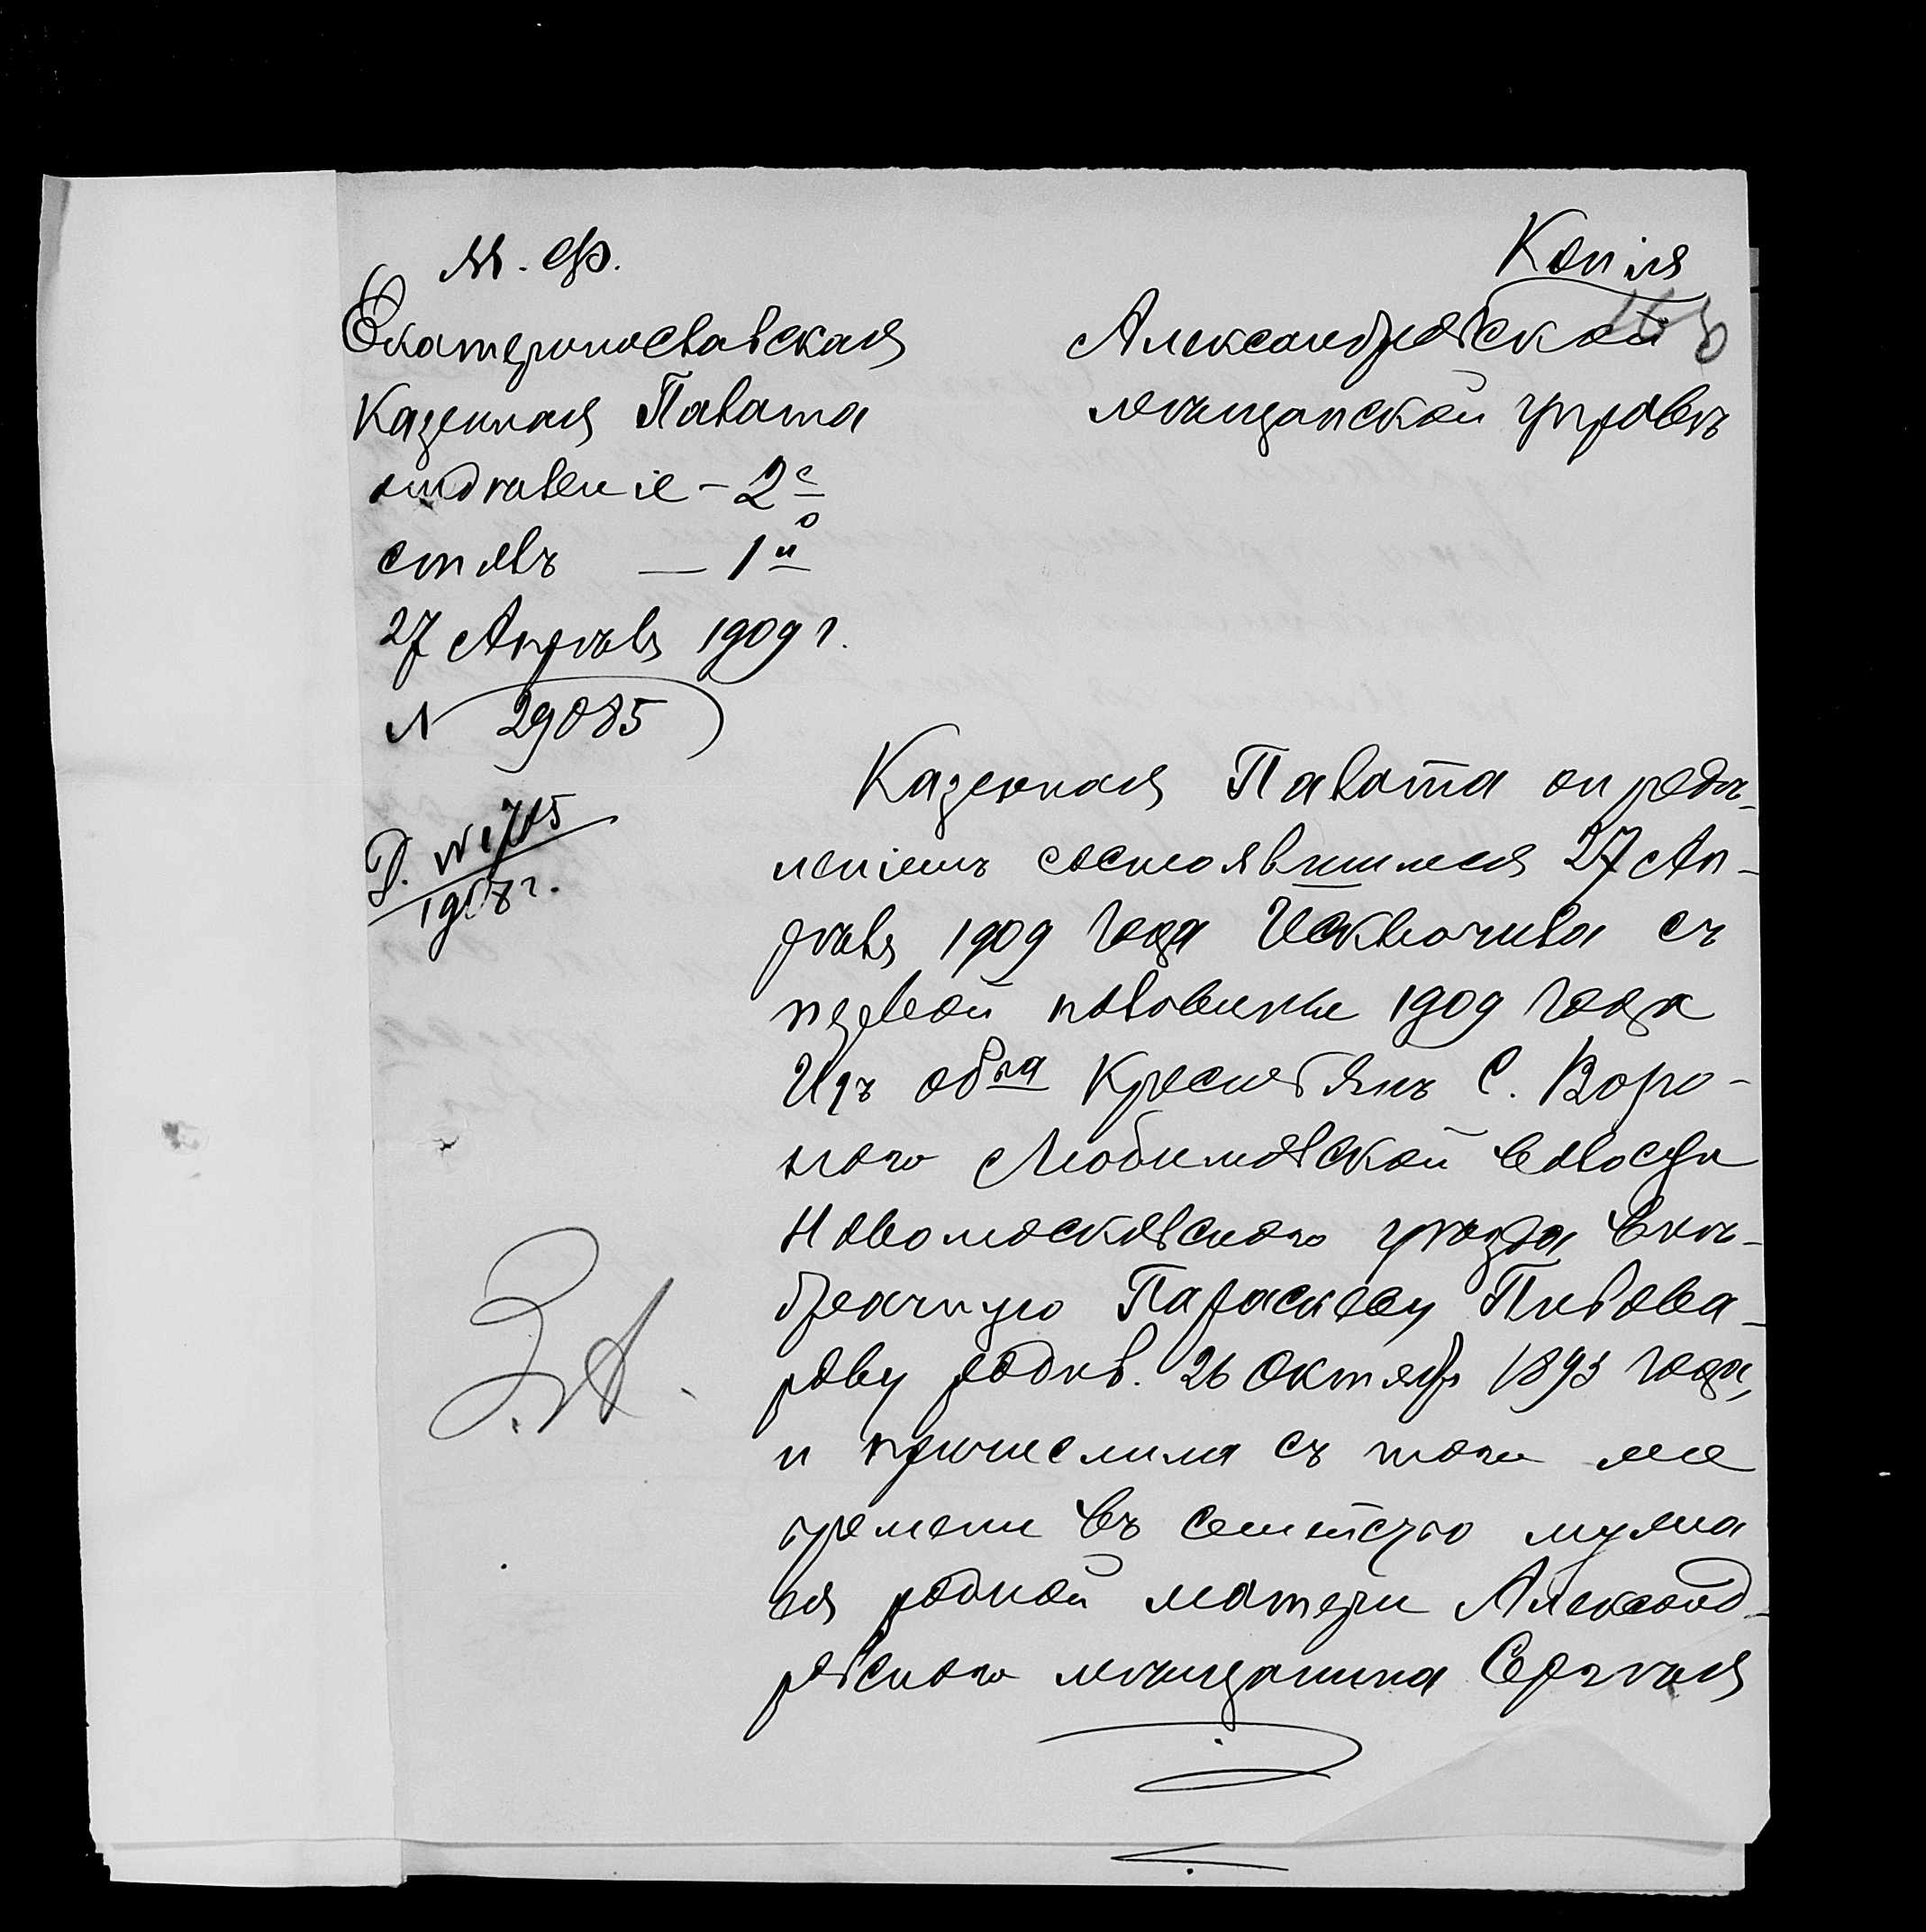 М. Ф.
Екатеринославская
Казенная Палата
отдѣленіе – 2е
столъ — 1й
27 Апрѣля 1909 г.
N 29085
Д. N 1705
1908 г.
Копія
Александровской
мѣщанской управѣ
Казенная Палата опредѣ-
леніемъ состоявшимся 27 Ап-
рѣля 1909 года Исключила съ
первой половины 1909 года
Изъ обва Крестьянъ С. Воро-
ного Любимовской волости
Новомосковскаго уѣзда внѣ-
брачную Параскеву Пивова-
рову родив. 26 Октября 1893 года,
и причислила съ того же
времени въ семейство мужа
ея родной матери Александ-
ровскаго мѣщанина Сергѣя